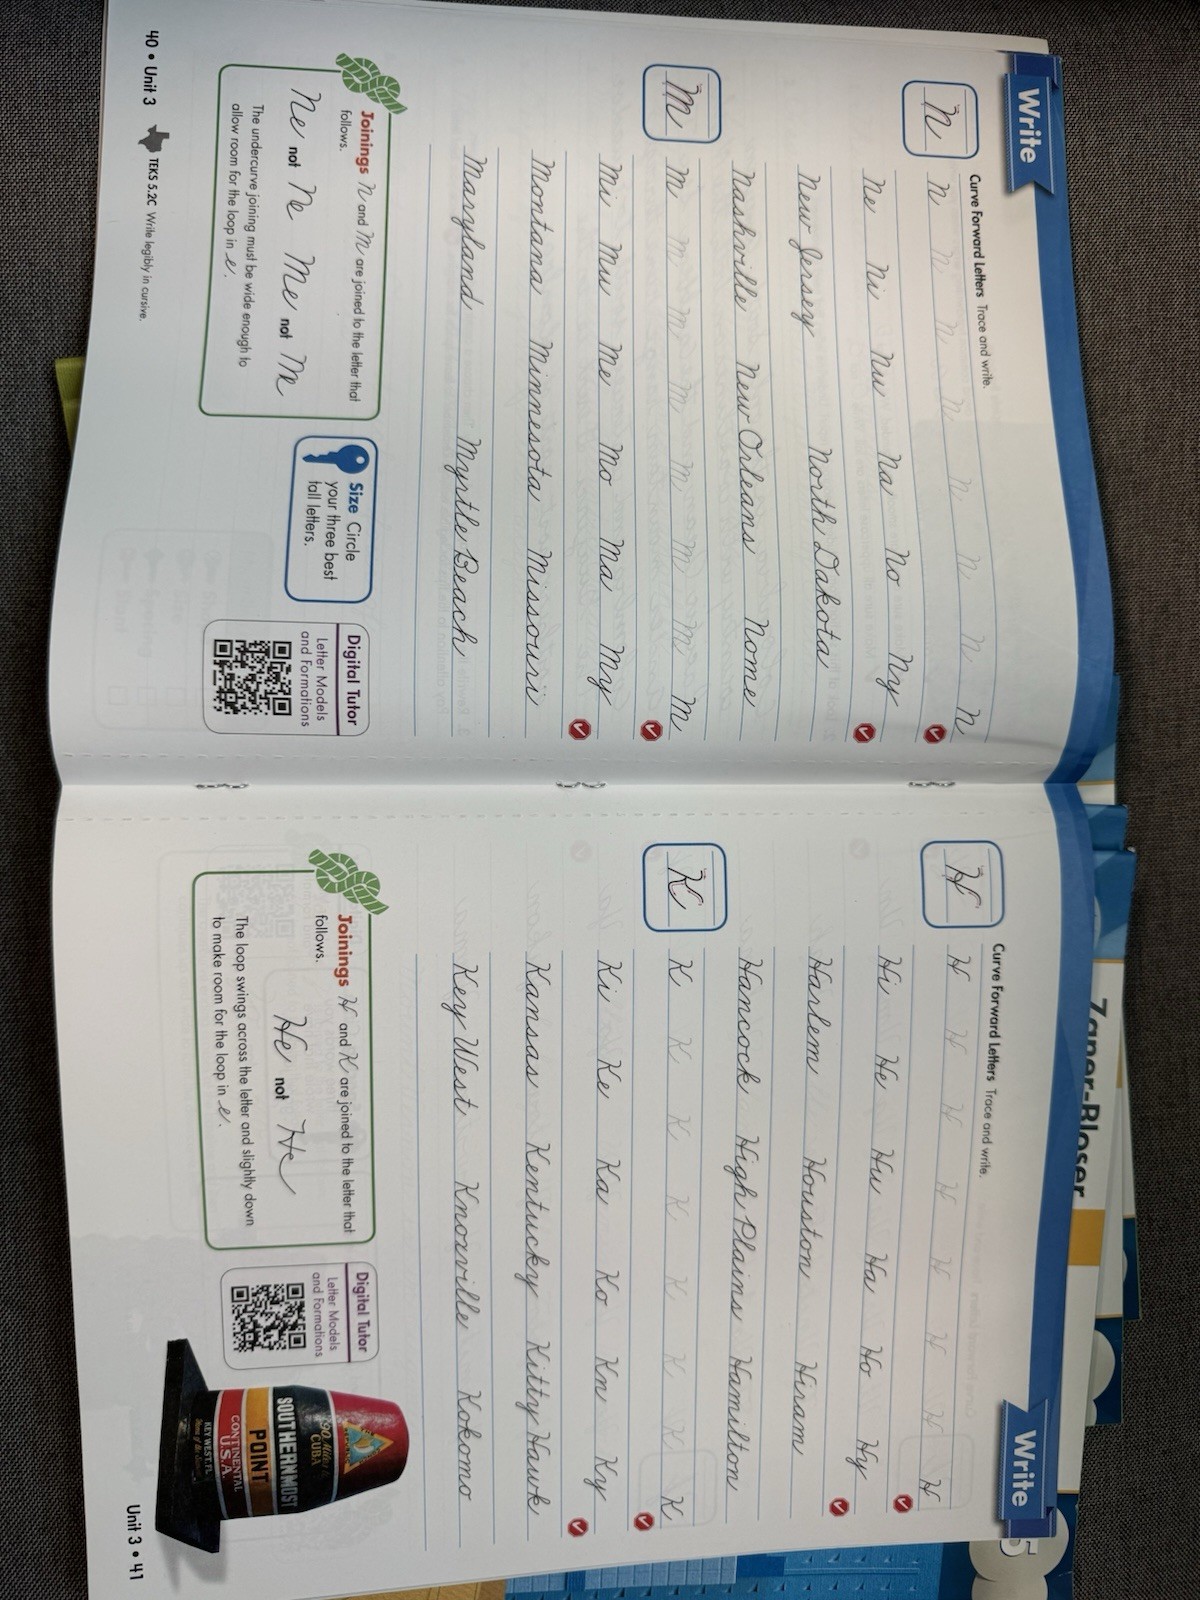 Write
Curve Forward Letters Trace and write.
N N N N N N N N N
Ne Ni Nu Na No Ny
New Jersey North Dakota
Nashville New Orleans Nome
M M M M M M M M M
Mi Mu Me Mo Ma My
Montana Minnesota Missouri
Maryland Myrtle Beach
Joinings N and M are joined to the letter that
follows.
Ne not Ne Me not Me
The undercurve joining must be wide enough to
allow room for the loop in e.
Size Circle
your three best
tall letters.
Digital Tutor
Letter Models
and Formations
40 • Unit 3 TEKS 5.2C Write legibly in cursive.
Write
Curve Forward Letters Trace and write.
H H H H H H H H H
Hi He Hu Ha Ho Hy
Harlem Houston Hiram
Hancock High Plains Hamilton
K K K K K K K K K
Ki Ke Ka Ko Kn Ky
Kansas Kentucky Kitty Hawk
Key West Knoxville Kokomo
Joinings H and K are joined to the letter that
follows.
He not He
The loop swings across the letter and slightly down
to make room for the loop in e.
Digital Tutor
Letter Models
and Formations
90 Miles to
CUBA
SOUTHERNMOST
POINT
CONTINENTAL
U.S.A.
KEY WEST, FL
Unit 3 • 41
Zaner-Bloser
5